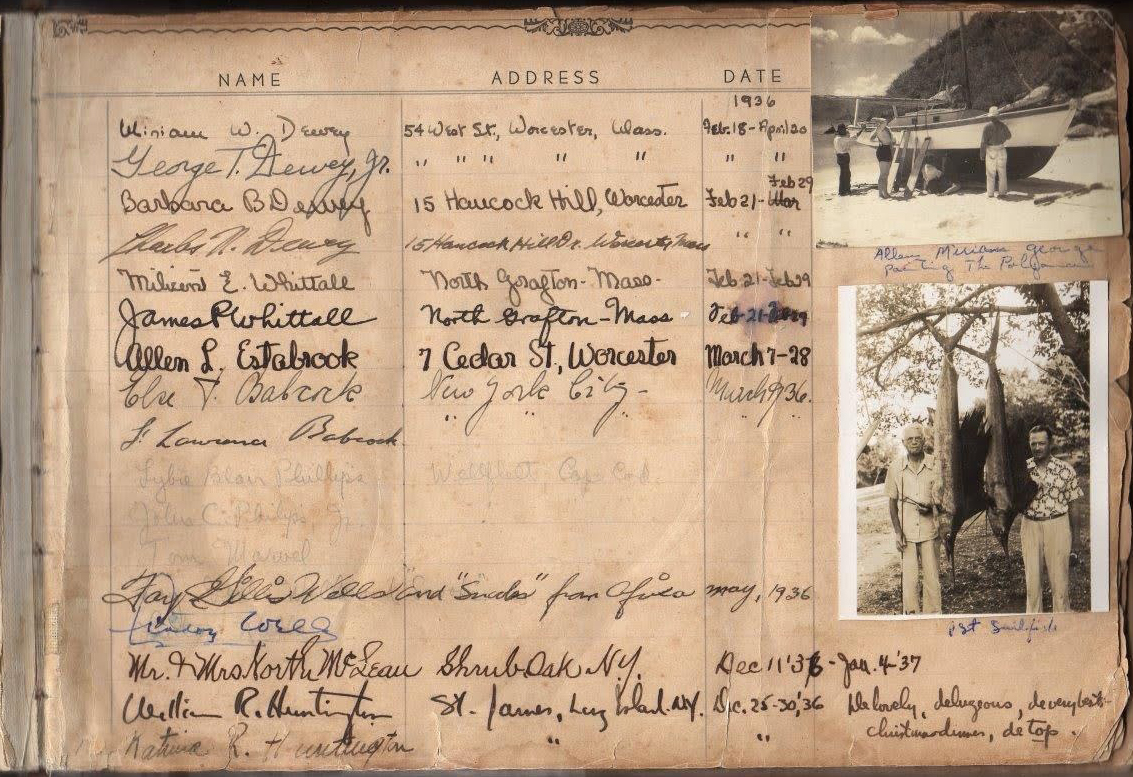 NAME ADDRESS DATE
1936
Miriam W. Dewey 54 West St., Worcester, Mass. Feb. 18 - April 20
George T. Dewey, Jr. " " " " " " "
Feb 29
Barbara B Dewey 15 Hancock Hill, Worcester Feb 21 - Mar
Charles N. Dewey 15 Hancock Hill Dr. Worcester, Mass " "
Milicent E. Whittall North Grafton - Mass - Feb. 21 - Feb 29
James P Whittall North Grafton - Mass Feb-21-Feb 29
Allen L. Estabrook 7 Cedar St, Worcester March 7-28
Else F. Babcock New York City - March 9/36.
F. Lawrence Babcock " "
Sybie Blair Phillips Wellfleet Cape Cod.
John C. Philips, Jr.
Tom Marvel
Fay Gillis Wells and "Snooks" from Africa may, 1936
Linton Wells
Mr. & Mrs North McLean Shrub Oak N.Y. Dec 11 '36 - Jan. 4 '37
William R. Huntington St. James, Long Island. N.Y. Dec. 25-30, '36 De lovely, delugeous, de very best
christmas dinner, de top.
Katrina R. Huntington " "
Allen Miriam George
Painting The
1st Sailfish